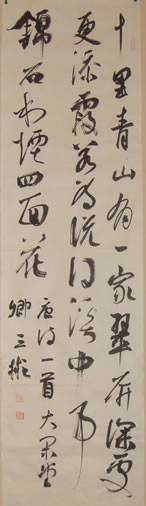 十里青山有一家翠屏深處
更添霞若為說得溪中事
錦石和煙四面花
唐詩一首大
卿三